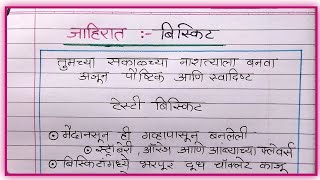 जाहिरात :- बिस्किट
तुमच्या सकाळच्या नाश्त्याला बनवा
अजून पौष्टिक आणि स्वादिष्ट
टेस्टी बिस्किट
मैदानसून ही गव्हापासून बनलेली
स्ट्रॉबेरी ऑरेंज आणि आंब्याच्या फ्लेवर्स
बिस्किटांमध्ये भरपूर दूध चॉकलेट काजू